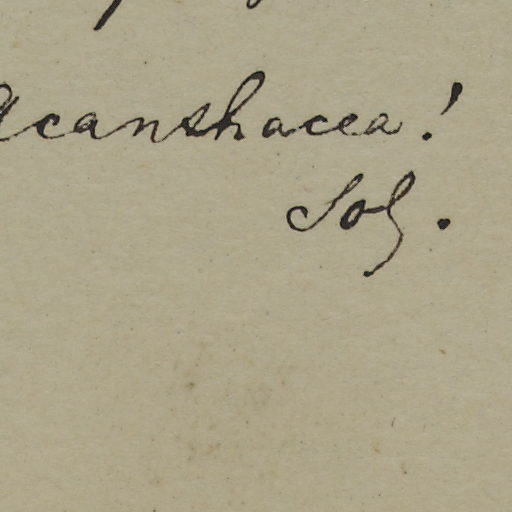 Acanthacea!
Sol.